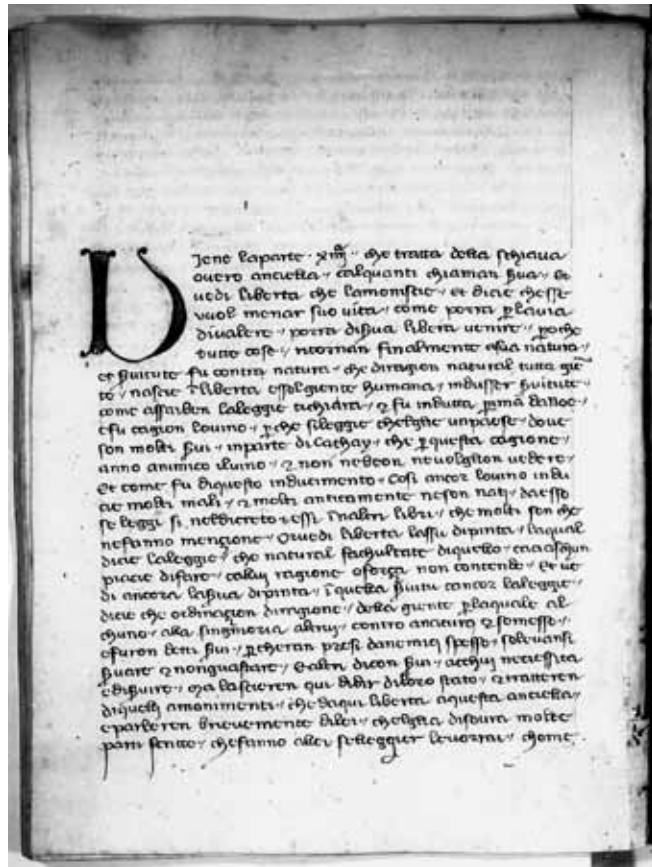 Viene laparte · xiiij · che tratta della schiava
overo anciella · calquanti chiaman serva · Et
vedi liberta che lamoniscie · et dicie chesse
vuol menar suo vita · come porra per lavia
divalere · porra diserva libera venire · peroche
tutte cose · ritornan finalmente asua natura ·
et servitute fu contra natura · che diragion natural tutta gien
te · nascie in liberta essolgiente humana · indusser servitute ·
come assai ben laleggie tichiara · et fu indutta prima da noe ·
e fu cagion lovino · perche si leggie chelglie un paese · dove
son molti servi · in parte di Cathay · che per questa cagione ·
anno animico ilvino · et non nebeon ne volglion vedere ·
Et come fu diquesto inducimento · Cosi ancor lovino indu
cie molti mali · et molti anticamente neson nati · daesso
se leggi si neldicreto · essi in altri libri · che molti son che
nefanno mençione · Or vedi liberta lassu dipinta · laqual
dicie laleggie · che natural fachultate diquello · caciaschun
piacie difare · calui ragione oforça non contende · Et ve
di ancora laserva dipinta · in quella servitu cancor laleggie ·
dicie che ordinaçion diragione · della giente per laquale al
chuno · alla singnioria altrui · contro anatura et somesso ·
e furon detti servi · percheran presi danemici spesso · solevansi
servare et nonguastare · Et altri dicon servi · acchui necessita
e diservire · Ma lascieren qui didir diloro stato · et tratteren
diquelli amonimenti · che daqui liberta aquesta anciella ·
e parleren brievemente dilei · chelglia disovra molte
parti scritte · chefanno allei selleggier levorrai · chome